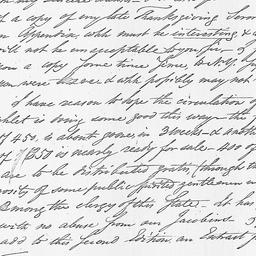 of a copy of my late Thanksgiving Serm
an Appendix, which must be interesting &
will not be unacceptable to you for
you a copy some time since,
you were which possibly may not
I have reason to hope the circulation of
is doing some good this way – the
of 450, is about gone, in 3 weeks & anothe
of 1350 is nearly ready for sale. 400 of
are to be distributed gratis (through the
osity of some public gentlemen
among the clergy of this State – It has
with no abuse from our Jacobins
add to this second Edition an Extract f